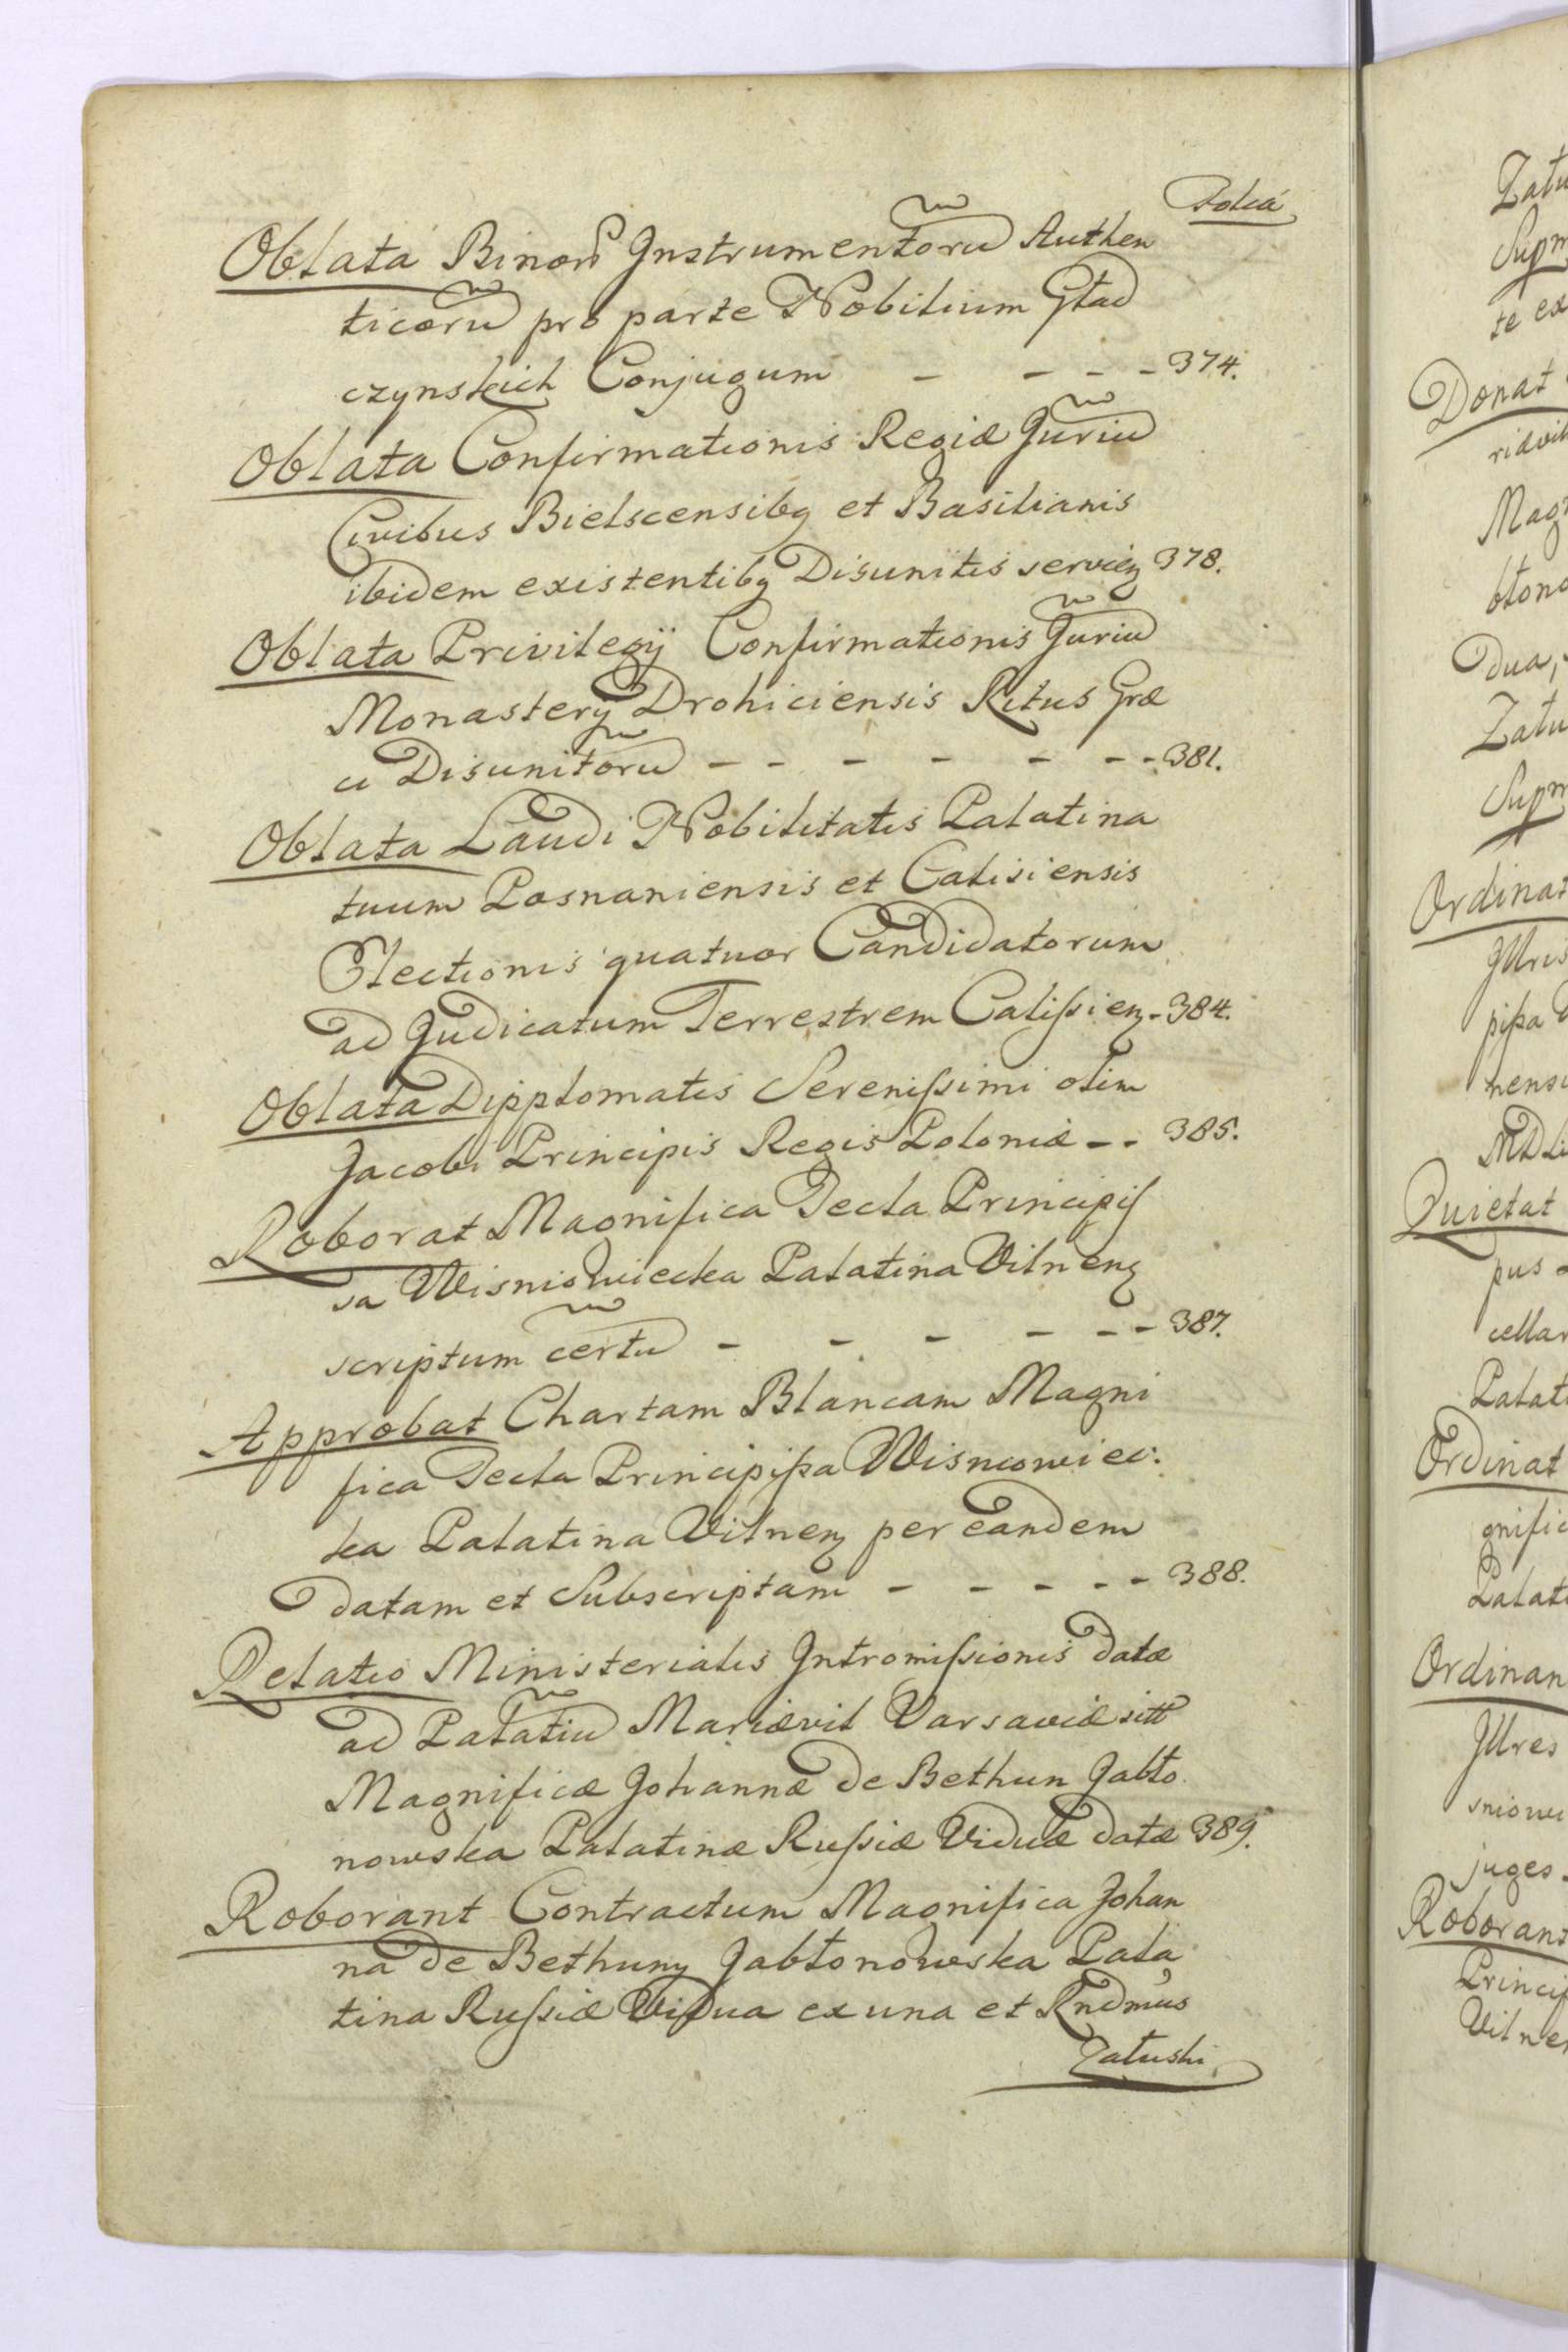 Folia
Oblata Binor Instrumentoru Authen
ticoru pro parte Nobilium Gład
czynskich Conjugum - - - - 374.
Oblata Confirmationis Regiæ Juriu
Civibus Bielscensibq et Basilianis
ibidem existentibq Disunitis servien 378.
Oblata Privilegij Confirmationis Juriu
Monasterij Drohiciensis Ritus Græ
ci Disunitoru - - - - - - - 381.
Oblata Laudi Nobilitatis Palatina
tuum Posnaniensis et Calisiensis
Electionis quatuor Candidatorum
ad Judicatum Terrestrem Calissien - 384.
Oblata Dipplomatis Serenissimi olim
Jacobi Principis Regis Poloniæ - - 385.
Roborat Magnifica Tecla Principis
sa Wisniowiecka Palatina Vilnen
scriptum certu - - - - - - 387.
Approbat Chartam Blancam Magni
fica Tecla Principissa Wisniowiec:
ka Palatina Vilnen per eandem
datam et Subscriptam - - - - - 388.
Relatio Ministerialis Intromissionis datæ
ad Palatiu Mariævil Varsaviæ sitt
Magnificæ Johannæ de Bethun Jabło
nowska Palatinæ Russiæ Viduæ datæ 389.
Roborant Contractum Magnifica Johan
na de Bethuny Jabłonowska Pala
tina Russiæ Vidua ex una et Rndmus
Załuski
Zału
Supm
te ex
Donat
riævil
Mag
błono
dua,
Zału
Supm
Ordinat
Illris
pissa
nensi
MD Li
Quietat
pus
cellar
Palati
Ordinat
gnific
Palati
Ordinan
Illres
sniowi
juges
Roborant
Princip
Vilnen